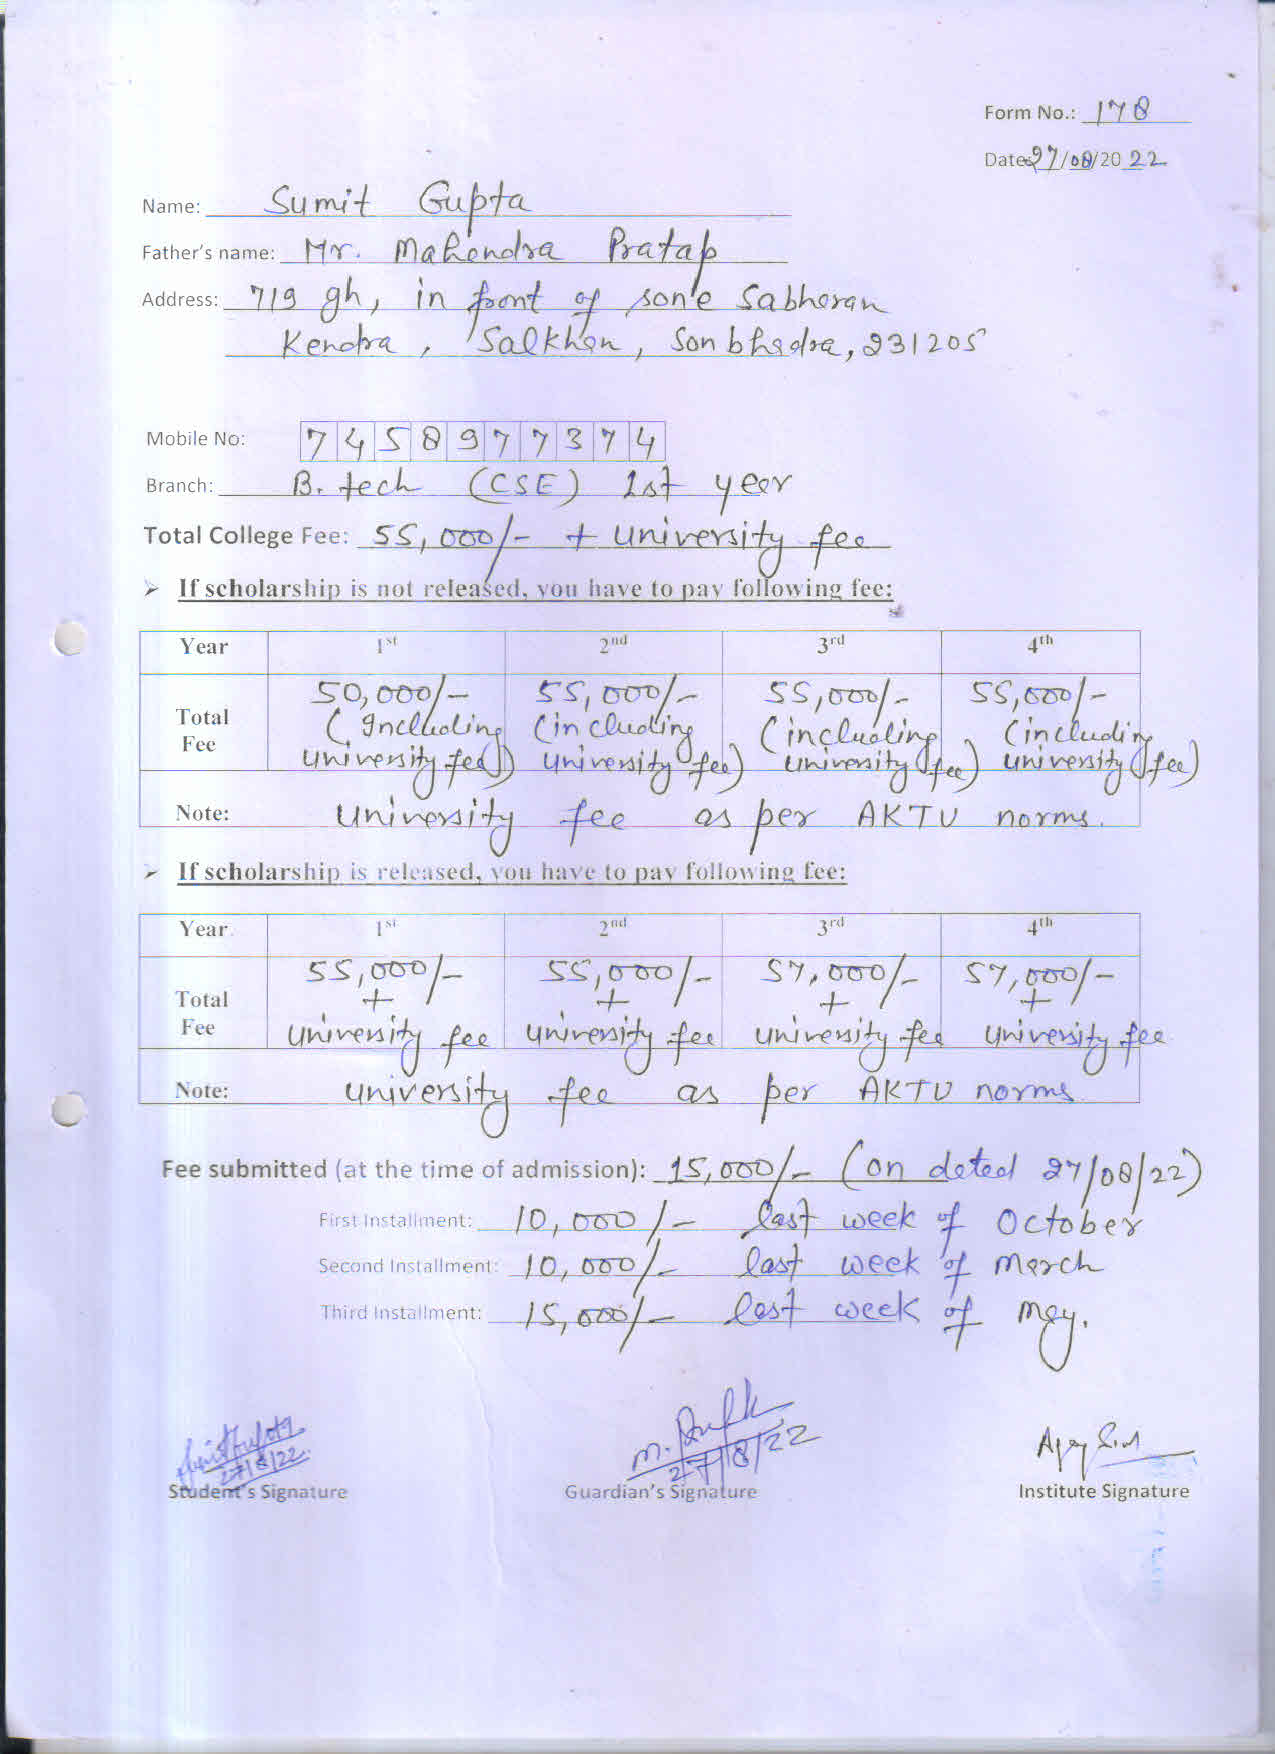 Form No.: 178
Date: 27/08/2022
Name: Sumit Gupta
Father's name: Mr. Mahendra Pratap
Address: 719 gh, in front of son'e Sabheran
Kendra, Salkhan, Sonbhadra, 231205
Mobile No: 7458977374
Branch: B.tech (CSE) 1st year
Total College Fee: 55,000/- + University fee
➢ If scholarship is not released, you have to pay following fee:
Year 1st 2nd 3rd 4th
Total Fee 50,000/- (Including University fee) 55,000/- (including University fee) 55,000/- (including University fee) 55,000/- (including University fee)
Note: University fee as per AKTU norms.
➢ If scholarship is released, you have to pay following fee:
Year 1st 2nd 3rd 4th
Total Fee 55,000/- + University fee 55,000/- + University fee 57,000/- + University fee 57,000/- + University fee
Note: University fee as per AKTU norms
Fee submitted (at the time of admission): 15,000/- (on dated 27/08/22)
First Installment: 10,000/- last week of October
Second Installment: 10,000/- last week of March
Third Installment: 15,000/- last week of May.
27/8/22 27/8/22
Student's Signature Guardian's Signature Institute Signature